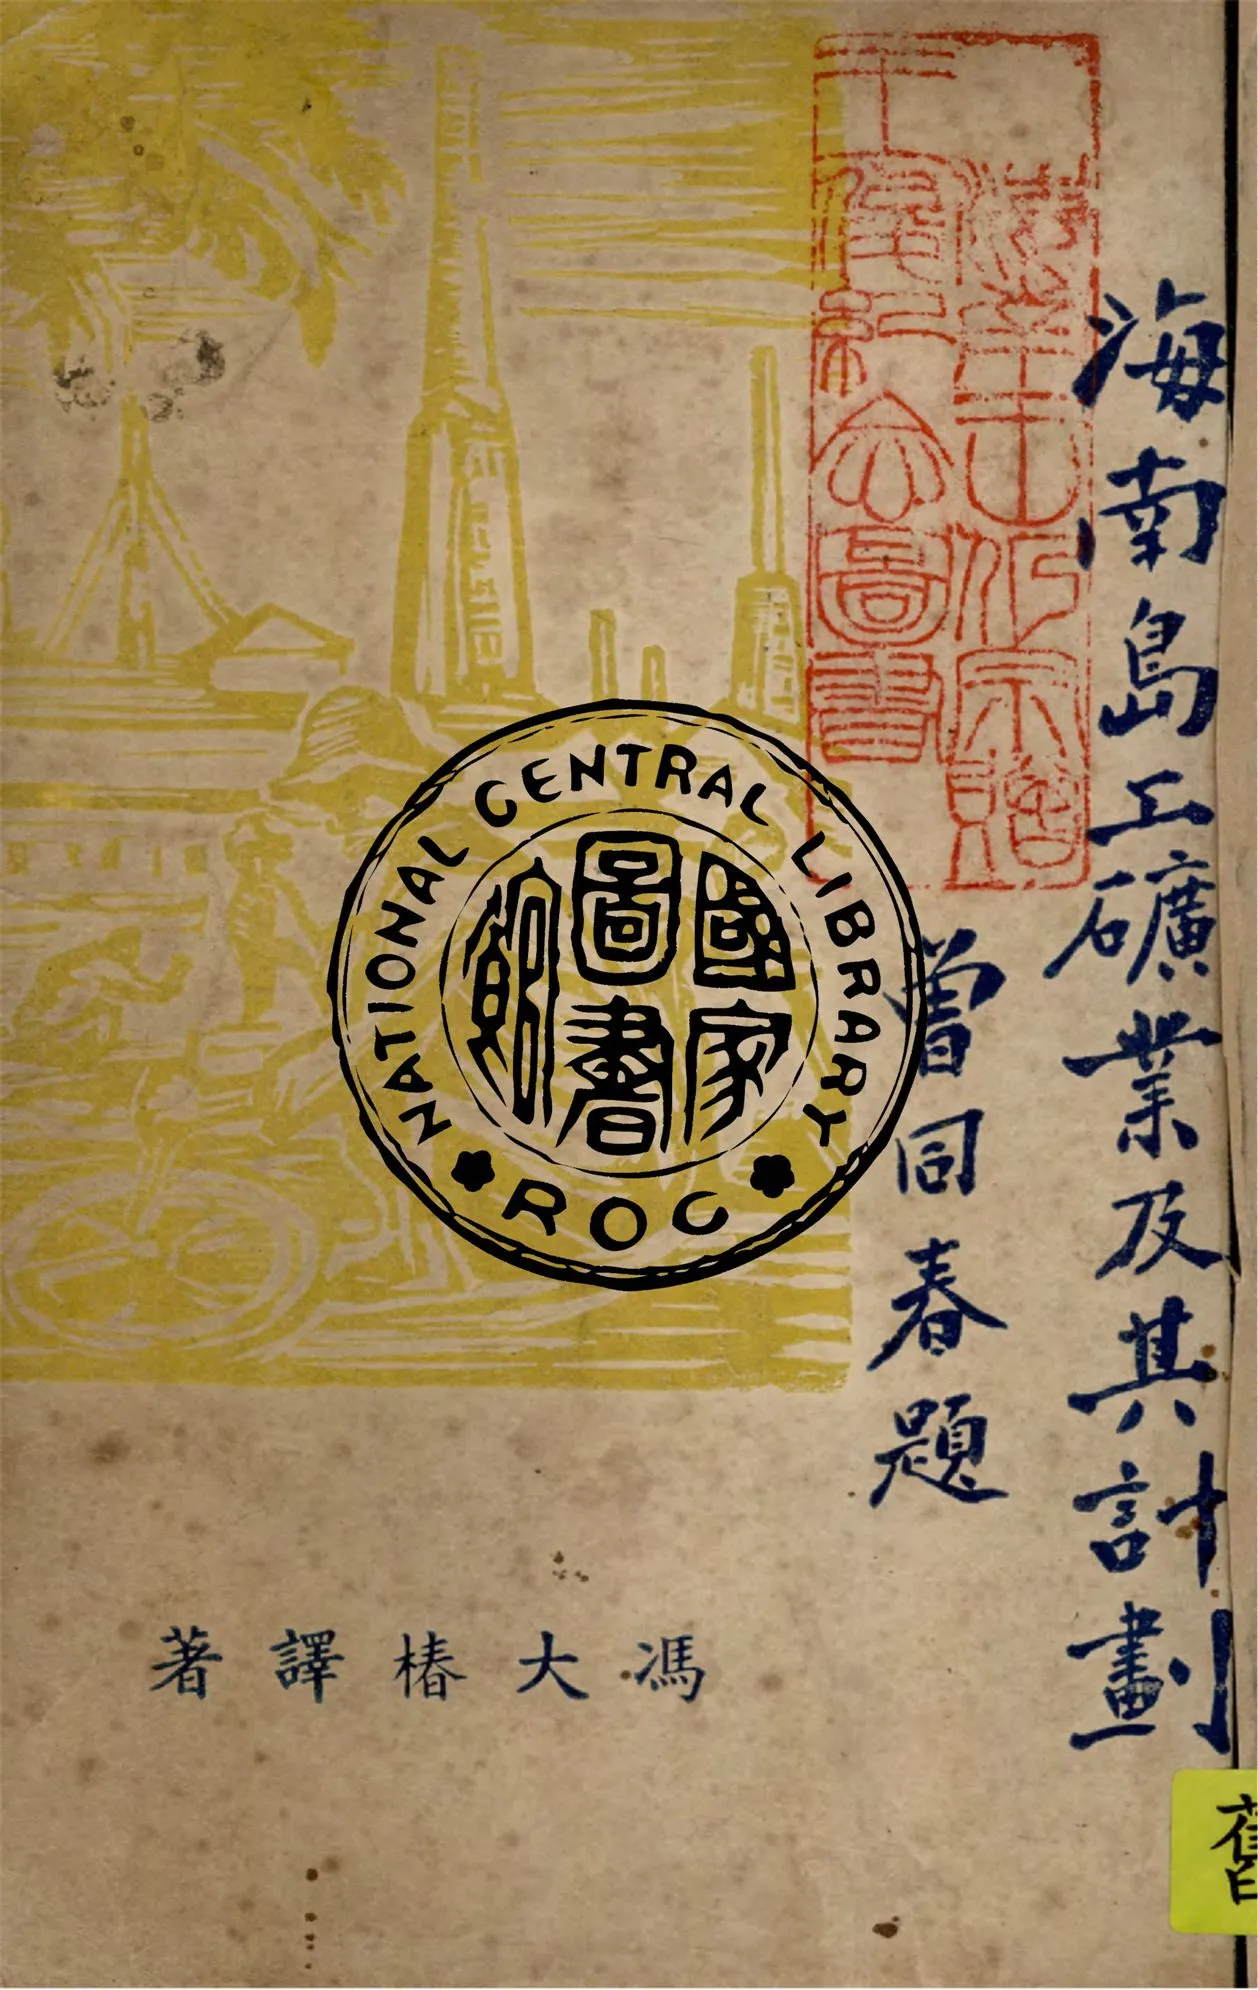 海南島工礦業及其計劃
曾同春題
馮大椿譯著
NATIONAL CENTRAL LIBRARY
國家圖書館
ROC
舊